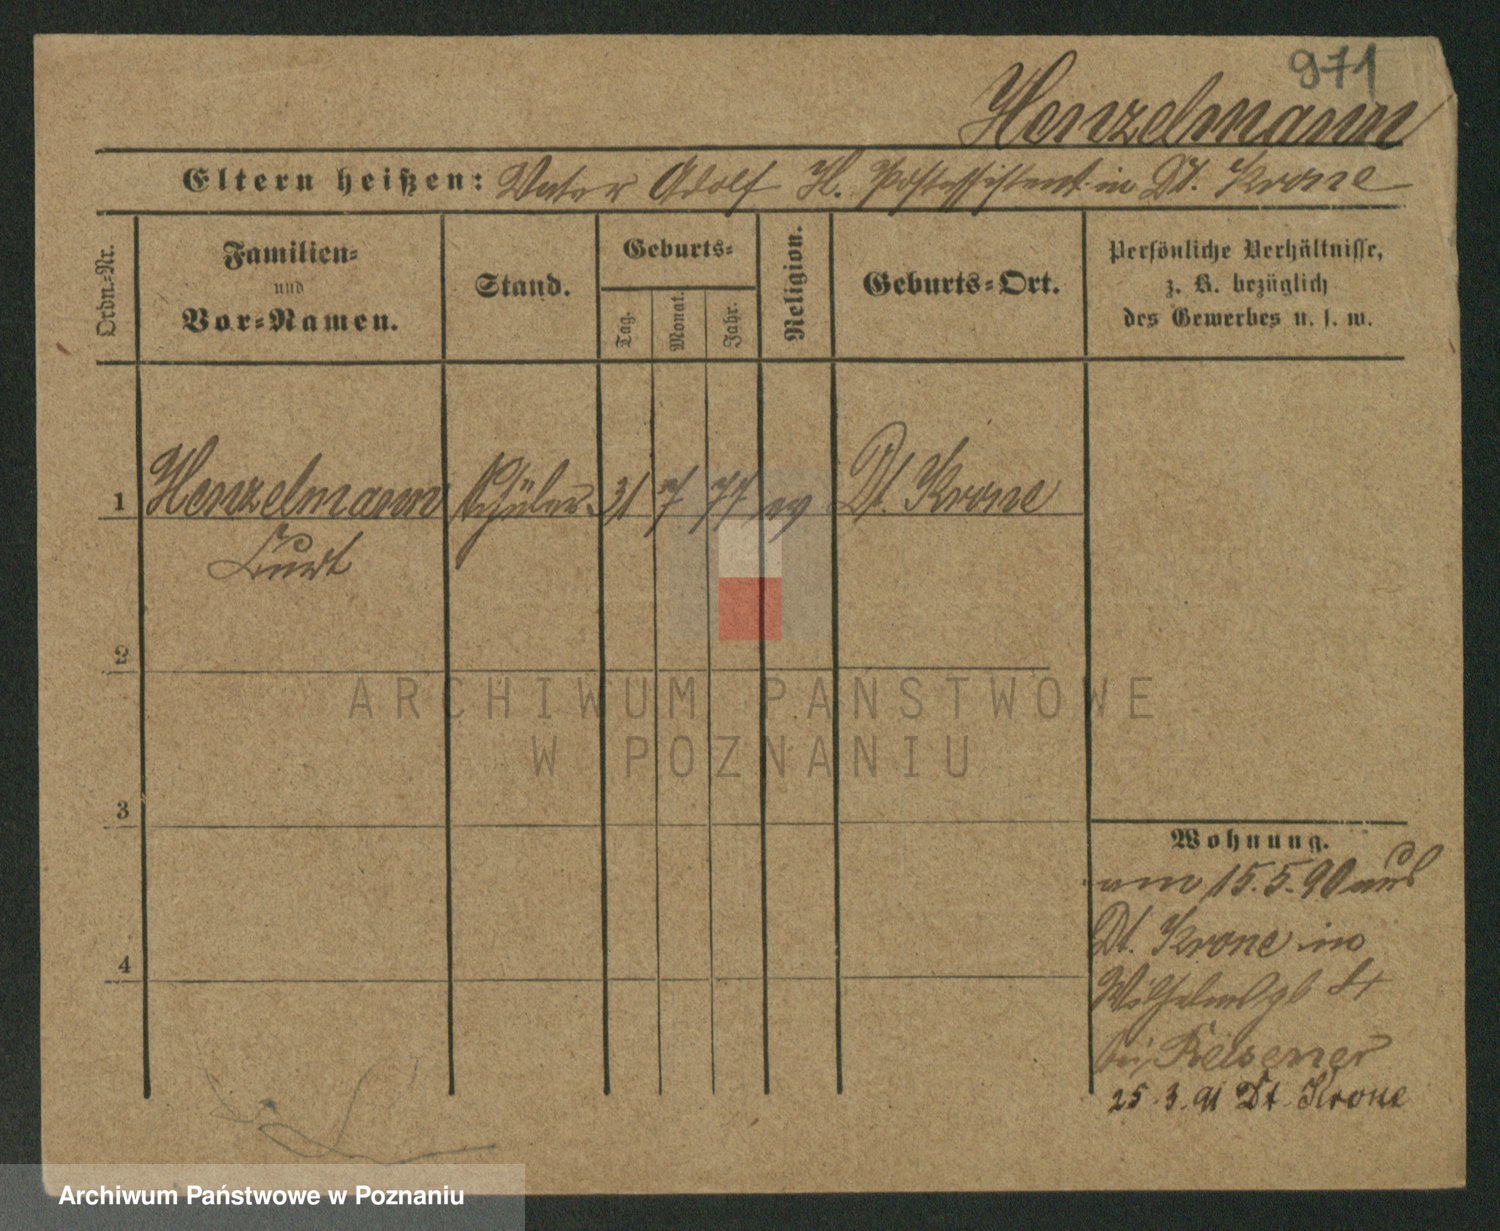 971
Henzelmann
Eltern heißen: Vater Adolf H. Postassistent in Dt. Krone
Ordn.-Nr.
Familien-
und
Vor-Namen.
Stand.
Geburts-
Tag.
Monat.
Jahr.
Religion.
Geburts-Ort.
Persönliche Verhältnisse,
z. B. bezüglich
des Gewerbes u. s. w.
1 Henzelmann Schüler 31 7 77 ev Dt. Krone
Curt
2
3
4
Wohnung.
am 15.5.90 aus
Dt. Krone in
bei
25.3.91 Dt. Krone
ARCHIWUM PAŃSTWOWE
W POZNANIU
Archiwum Państwowe w Poznaniu